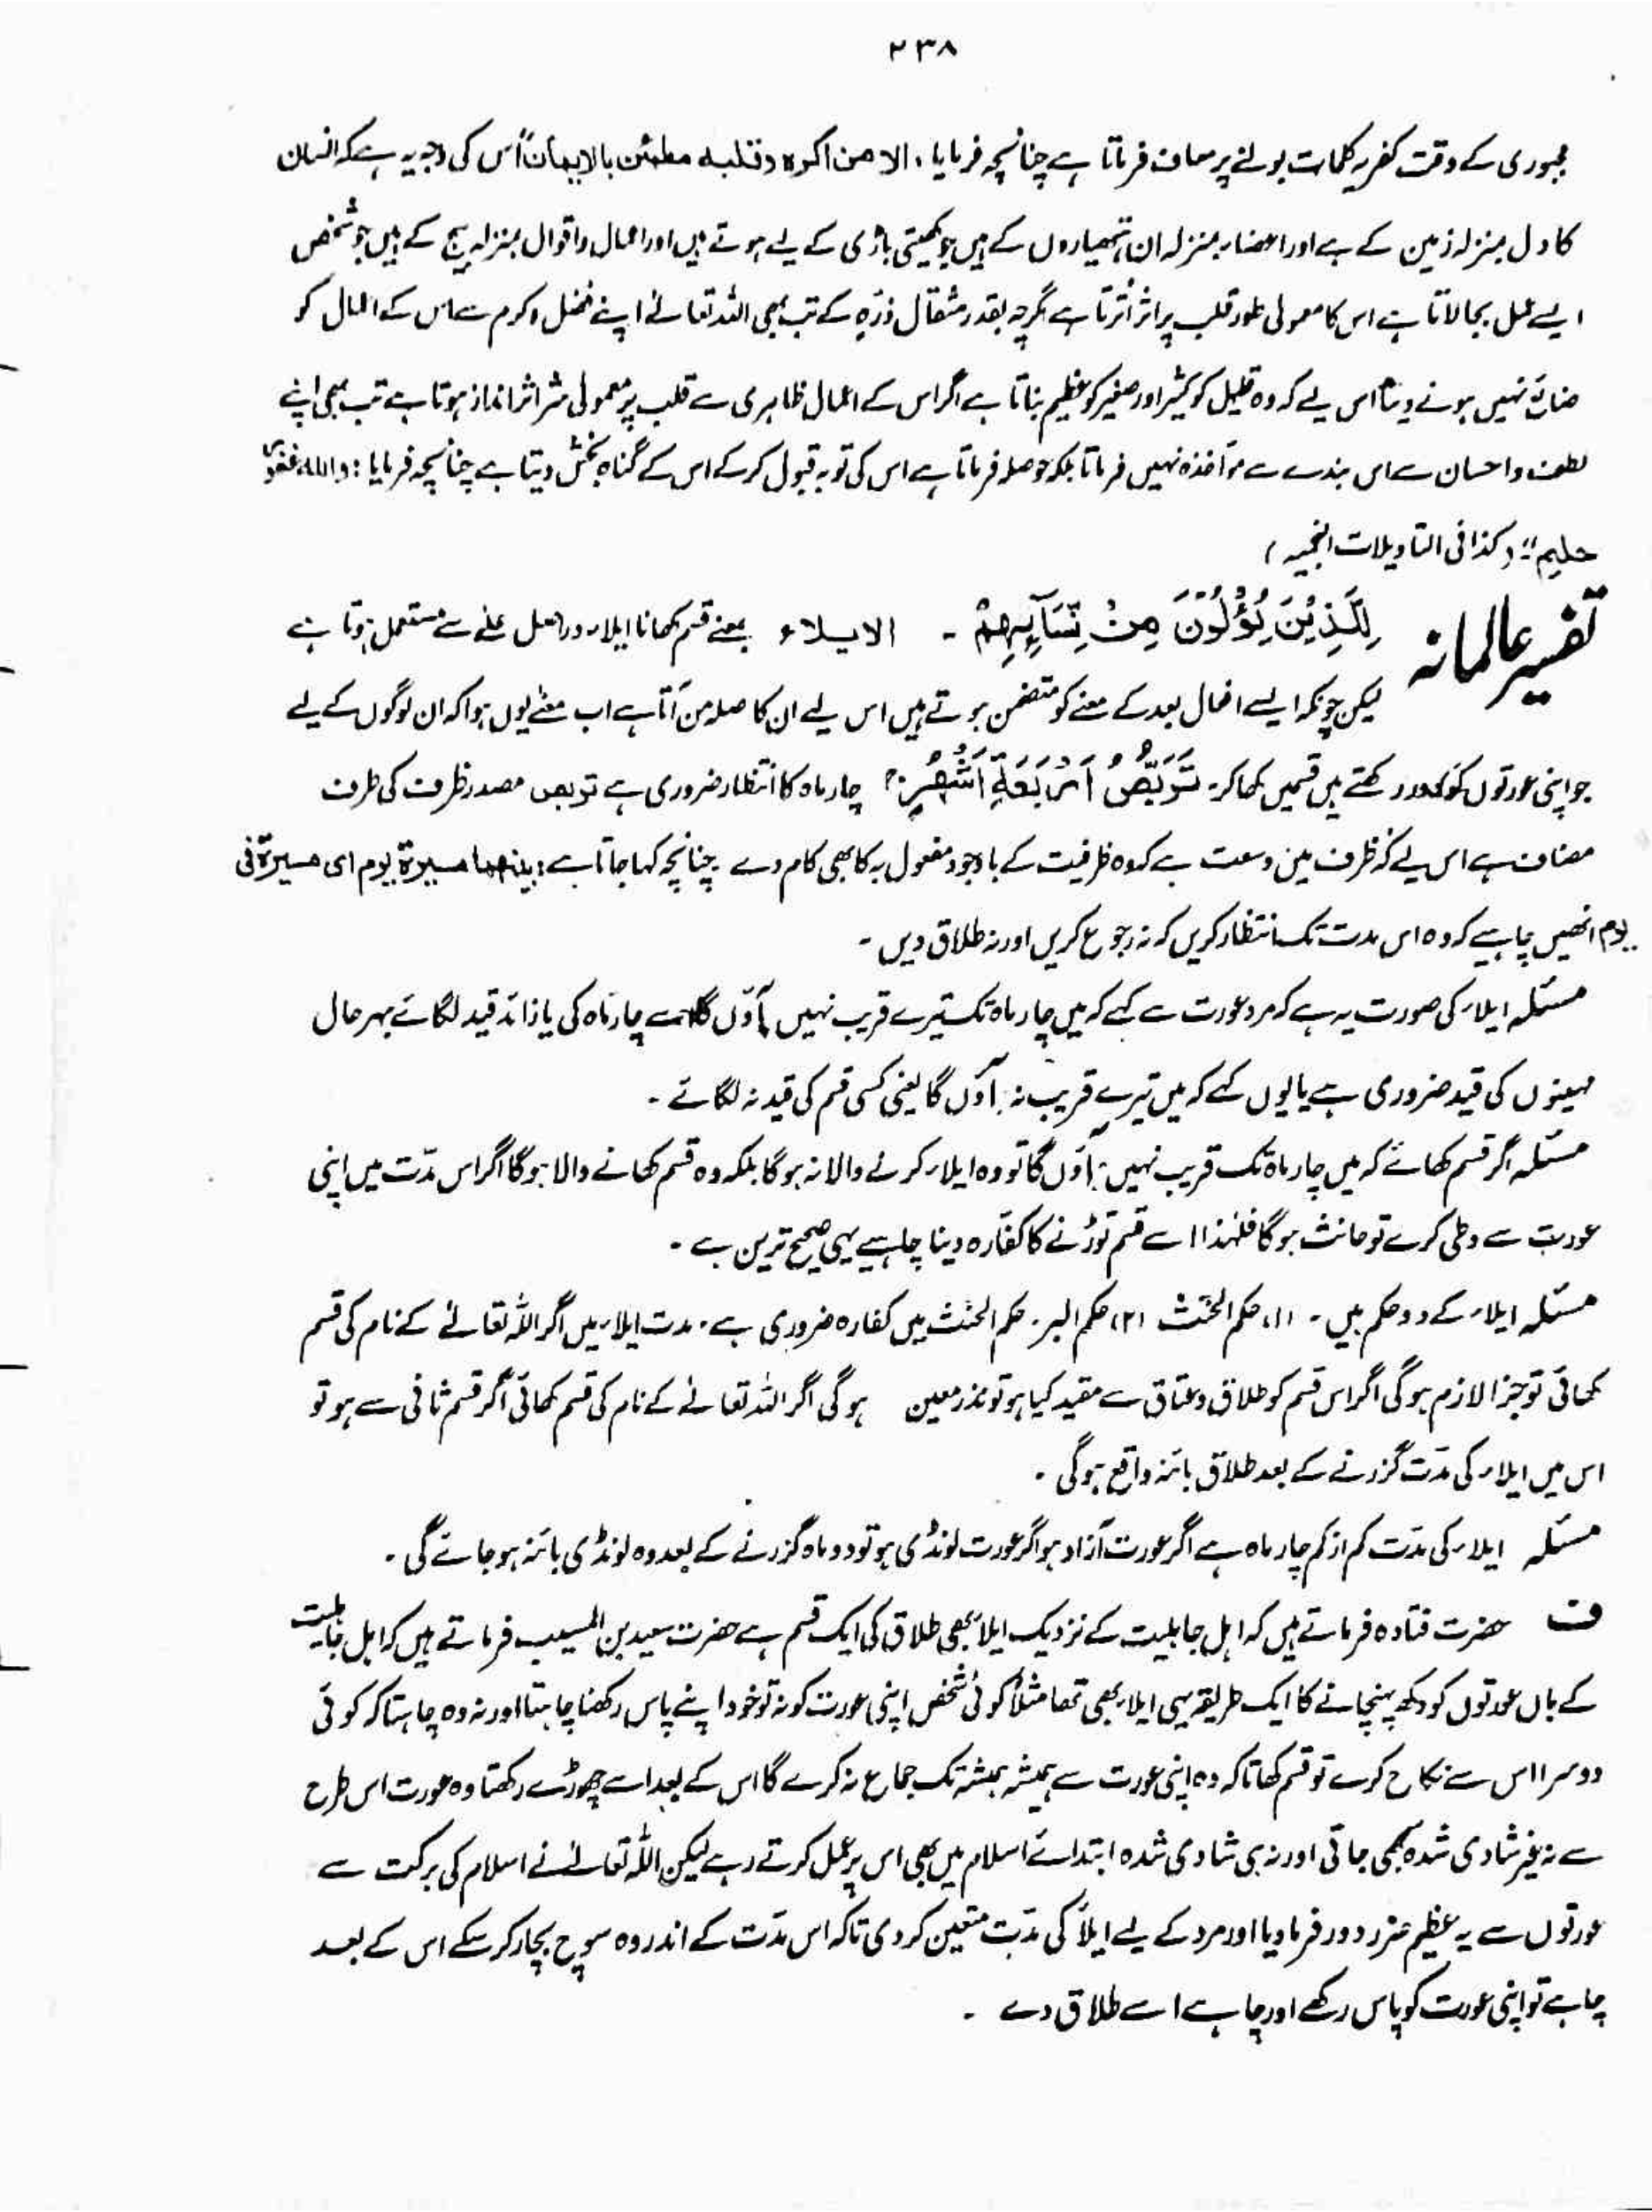 ۲۳۸
مجبوری کے وقت کفریہ کلمات بولنے پر معاف فرماتا ہے چنانچہ فرمایا ، الا من اکرہ وقلبہ مطمئن بالایمان" اس کی وجہ یہ ہے کہ انسان
کا دل بمنزلہ زمین کے ہے اور اعضاء بمنزلہ ان ہتھیاروں کے ہیں جو کھیتی باڑی کے لیے ہوتے ہیں اور اعمال و اقوال بمنزلہ بیج کے ہیں جو شخص
ایسے عمل بجا لاتا ہے اس کا معمولی طور قلب پر اثر اُترتا ہے اگرچہ بقدر مثقال ذرّہ کے تب بھی اللہ تعالےٰ اپنے فضل و کرم سے اس کے اعمال کو
ضائع نہیں ہونے دیتا اس لیے کہ وہ قلیل کو کثیر اور صغیر کو عظیم بناتا ہے اگر اس کے اعمال ظاہری سے قلب پر معمولی شر اثر انداز ہوتا ہے تب بھی اپنے
لطف و احسان سے اس بندے سے مؤاخذہ نہیں فرماتا بلکہ حوصلہ فرماتا ہے اس کی توبہ قبول کرکے اس کے گناہ بخش دیتا ہے چنانچہ فرمایا : واللہ غفورٌ
حلیم" ( کذا فی التاویلات النجمیہ )
تفسیر عالمانہ لِلَّذِيْنَ يُؤْلُوْنَ مِنْ نِّسَآئِهِمْ ۔ الایلاء بمعنے قسم کھانا ایلاء دراصل علے سے مستعمل ہوتا ہے
لیکن چونکہ ایسے افعال بعد کے معنے کو متضمن ہوتے ہیں اس لیے ان کا صلہ من آتا ہے اب معنے یوں ہوا کہ ان لوگوں کے لیے
جو اپنی عورتوں کو دور رکھتے ہیں قسمیں کھا کر ۔ تَرَبُّصُ اَرْبَعَةِ اَشْهُرٍ چار ماہ کا انتظار ضروری ہے تربص مصدر ظرف کی طرف
مضاف ہے اس لیے کہ ظرف میں وسعت ہے کہ وہ ظرفیت کے باوجود مفعول بہ کا بھی کام دے چنانچہ کہا جاتا ہے : بینهما مسیرة یوم ای مسیرة فی
یوم انھیں چاہیے کہ وہ اس مدت تک انتظار کریں کہ نہ رجوع کریں اور نہ طلاق دیں ۔
مسئلہ ایلاء کی صورت یہ ہے کہ مرد عورت سے کہے کہ میں چار ماہ تک تیرے قریب نہیں آؤں گا اسے چار ماہ کی یا زائد قید لگائے بہرحال
مہینوں کی قید ضروری ہے یا یوں کہے کہ میں تیرے قریب نہ آؤں گا یعنی کسی قسم کی قید نہ لگائے ۔
مسئلہ اگر قسم کھائے کہ میں چار ماہ تک قریب نہیں آؤں گا تو وہ ایلاء کرنے والا نہ ہوگا بلکہ وہ قسم کھانے والا ہوگا اگر اس مدّت میں اپنی
عورت سے وطی کرے تو حانث ہوگا فلہٰذا اسے قسم توڑنے کا کفّارہ دینا چاہیے یہی صحیح ترین ہے ۔
مسئلہ ایلاء کے دو حکم ہیں ۔ (۱) حکم الحنث (۲) حکم البر ۔ حکم الحنث میں کفارہ ضروری ہے ۔ مدت ایلاء میں اگر اللہ تعالےٰ کے نام کی قسم
کھائی تو جزا لازم ہوگی اگر اس قسم کو طلاق و عتاق سے مقید کیا ہو تو نذر معین ہوگی اگر اللہ تعالےٰ کے نام کی قسم کھائی اگر قسم ثانی سے ہو تو
اس میں ایلاء کی مدّت گزرنے کے بعد طلاق بائنہ واقع ہوگی ۔
مسئلہ ایلاء کی مدّت کم از کم چار ماہ ہے اگر عورت آزاد ہو اگر عورت لونڈی ہو تو دو ماہ گزرنے کے بعد وہ لونڈی بائنہ ہو جائے گی ۔
ف حضرت قتادہ فرماتے ہیں کہ اہل جاہلیت کے نزدیک ایلاء بھی طلاق کی ایک قسم ہے حضرت سعید بن المسیب فرماتے ہیں کہ اہل جاہلیت
کے ہاں عورتوں کو دکھ پہنچانے کا ایک طریقہ یہی ایلاء بھی تھا مثلاً کوئی شخص اپنی عورت کو نہ تو خود اپنے پاس رکھنا چاہتا اور نہ وہ چاہتا کہ کوئی
دوسرا اس سے نکاح کرے تو قسم کھاتا کہ وہ اپنی عورت سے ہمیشہ ہمیشہ تک جماع نہ کرے گا اس کے بعد اسے چھوڑے رکھتا وہ عورت اس طرح
سے نہ غیر شادی شدہ سمجھی جاتی اور نہ ہی شادی شدہ ابتدائے اسلام میں بھی اس پر عمل کرتے رہے لیکن اللہ تعالےٰ نے اسلام کی برکت سے
عورتوں سے یہ عظیم ضرر دور فرما دیا اور مرد کے لیے ایلاء کی مدّت متعین کر دی تاکہ اس مدّت کے اندر وہ سوچ بچار کر سکے اس کے بعد
چاہے تو اپنی عورت کو پاس رکھے اور چاہے اسے طلاق دے ۔